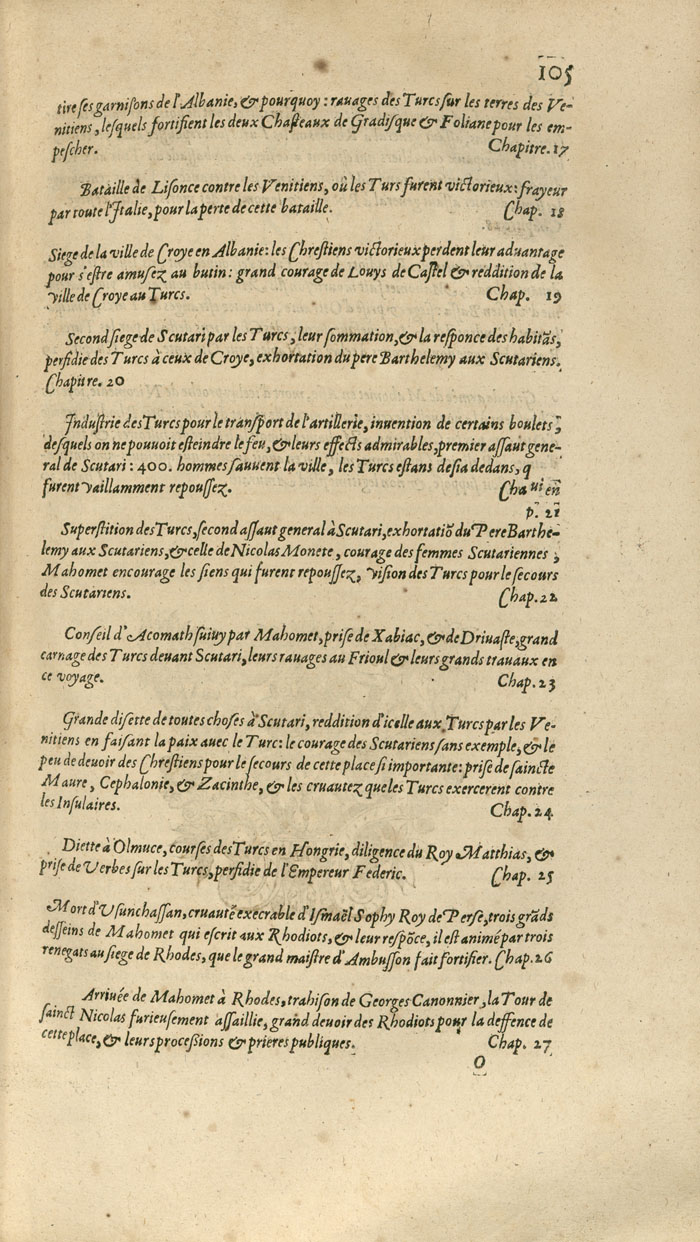 105
tire ses garnisons de l'Albanie, & pourquoy : rauages des Turcs sur les terres des Ve-
nitiens, lesquels fortifient les deux Chasteaux de Gradisque & Foliane pour les em-
pescher. Chapitre. 17
Bataille de Lisonce contre les Venitiens, où les Turs furent victorieux: frayeur
par toute l'Italie, pour la perte de cette bataille. Chap. 18
Siege de la ville de Croye en Albanie: les Chrestiens victorieux perdent leur aduantage
pour s'estre amusez au butin : grand courage de Louys de Castel & reddition de la
ville de Croye au Turcs. Chap. 19
Second siege de Scutari par les Turcs, leur sommation, & la responce des habitãs,
perfidie des Turcs à ceux de Croye, exhortation du pere Barthelemy aux Scutariens.
Chapitre. 20
Industrie des Turcs pour le transport de l'artillerie, inuention de certains boulets,
desquels on ne pouuoit esteindre le feu, & leurs effects admirables, premier assaut gene-
ral de Scutari : 400. hommes sauuent la ville, les Turcs estans desia dedans, q
furent vaillamment repoussez. Cha ui en
p. 21
Superstition des Turcs, second assaut general à Scutari, exhortatiõ du Pere Barthe-
lemy aux Scutariens, & celle de Nicolas Monete, courage des femmes Scutariennes,
Mahomet encourage les siens qui furent repoussez, vision des Turcs pour le secours
des Scutariens. Chap. 22
Conseil d'Acomath suiuy par Mahomet, prise de Xabiac, & de Driuaste, grand
carnage des Turcs deuant Scutari, leurs rauages au Frioul & leurs grands trauaux en
ce voyage. Chap. 23
Grande disette de toutes choses à Scutari, reddition d'icelle aux Turcs par les Ve-
nitiens en faisant la paix auec le Turc: le courage des Scutariens sans exemple, & le
peu de deuoir des Chrestiens pour le secours de cette place si importante: prise de saincte
Maure, Cephalonie, & Zacinthe, & les cruautez que les Turcs exercerent contre
les Insulaires. Chap. 24
Diette à Olmuce, courses des Turcs en Hongrie, diligence du Roy Matthias, &
prise de Verbes sur les Turcs, perfidie de l'Empereur Federic. Chap. 25
Mort d'Usunchassan, cruauté execrable d'Ismaël Sophy Roy de Perse, trois grãds
desseins de Mahomet qui escrit aux Rhodiots, & leur respõce, il est animé par trois
renegats au siege de Rhodes, que le grand maistre d'Ambusson fait fortifier. Chap. 26
Arriuée de Mahomet à Rhodes, trahison de Georges Canonnier, la Tour de
sainct Nicolas furieusement assaillie, grand deuoir des Rhodiots pour la deffence de
cette place, & leurs processions & prieres publiques. Chap. 27
O